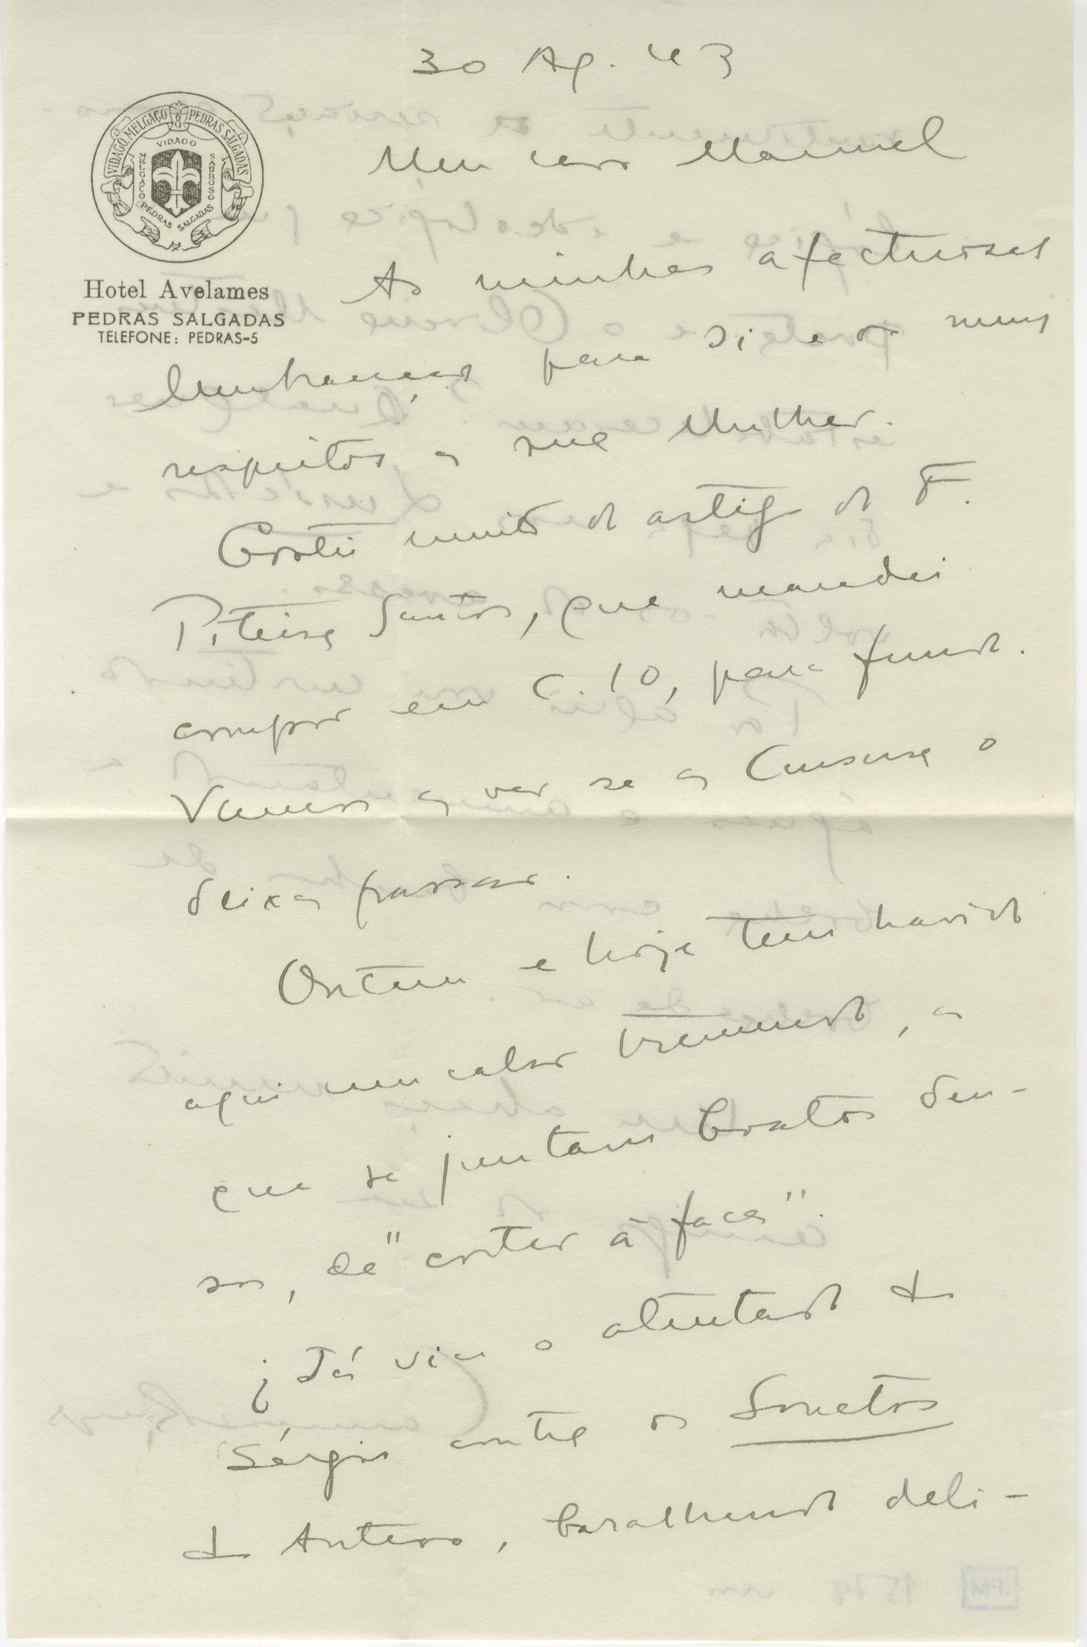 30 Ag. 43
Meu caro Manuel
VIDAGO, MELGAÇO & PEDRAS SALGADAS
VIDAGO
MELGAÇO
SABROSO
PEDRAS SALGADAS
Hotel Avelames
PEDRAS SALGADAS
TELEFONE: PEDRAS-5
As minhas afectuosas
lembranças para si e os meus
respeitos a sua Mulher.
Gostei muito do artigo do F.
Piteira Santos, que mandei
compor em C. 10, para fundo.
Vamos a ver se a Censura o
deixa passar.
Ontem e hoje tem havido
aqui um calor tremendo, a
que se juntam boatos den-
sos, de "cortar à faca".
¿Já viu o atentado do
Sérgio contra os Sonetos
do Antero, baralhando deli-